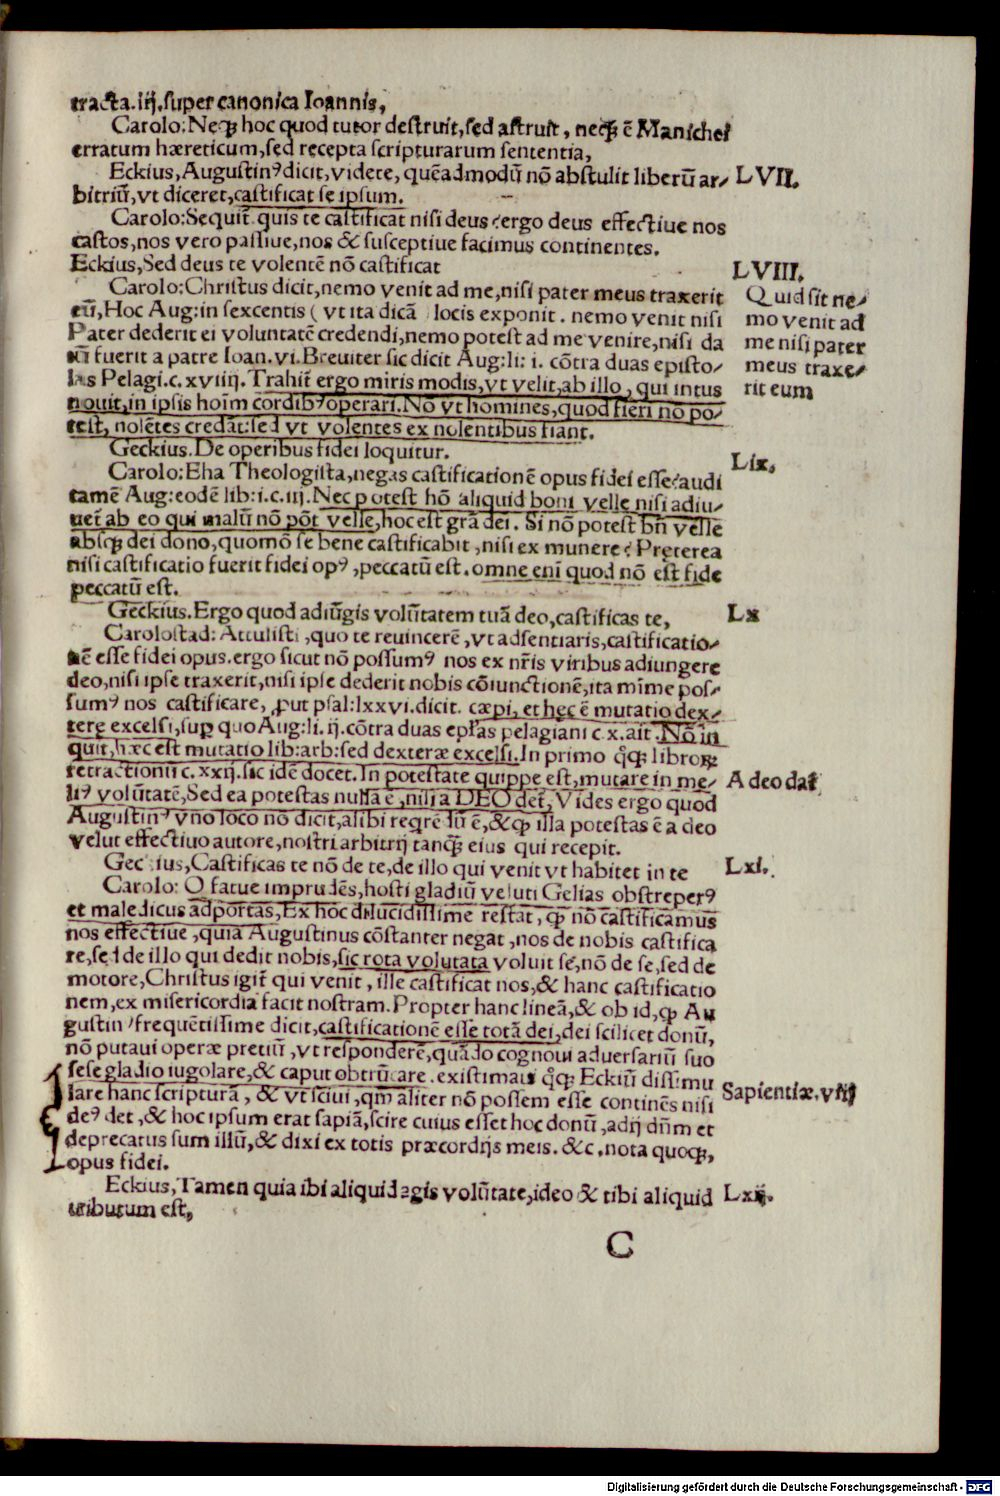 tracta.iij.super canonica Ioannis,
Carolo: Neqꝫ hoc quod tutor destruit,sed astruit, neqꝫ ē Manichei
erratum hæreticum,sed recepta scripturarum sententia,
Eckius, Augustinꝰ dicit, videte, quēadmodū nō abstulit liberū ar⸗ LVII.
bitriū, vt diceret, castificat se ipsum.
Carolo: Sequit̃ quis te castificat nisi deus? ergo deus effectiue nos
castos, nos vero passiue, nos & susceptiue facimus continentes.
Eckius, Sed deus te volentē nō castificat LVIII.
Carolo: Christus dicit, nemo venit ad me, nisi pater meus traxerit
eū, Hoc Aug: in sexcentis ( vt ita dicā locis exponit. nemo venit nisi
Pater dederit ei voluntatē credendi, nemo potest ad me venire, nisi da
tū fuerit a patre Ioan. vi. Breuiter sic dicit Aug: li: i. cōtra duas episto⸗
las Pelagi. c. xviiij. Trahit̃ ergo miris modis, vt velit, ab illo, qui intus
nouit, in ipsis hoīm cordibꝰ operari. Nō vt homines, quod fieri nō po⸗
test, nolētes credāt: sed vt volentes ex nolentibus fiant.
Quid sit ne⸗
mo venit ad
me nisi pater
meus traxe⸗
rit eum
Geckius. De operibus fidei loquitur. Lix.
Carolo: Eha Theologista, negas castificationē opus fidei esse? audi
tamē Aug: eodē lib: i. c. iij. Nec potest hō aliquid boni velle nisi adiu⸗
uet̃ ab eo qui malū nō pōt velle, hoc est grā dei. Si nō potest bn̄ velle
absqꝫ dei dono, quomō se bene castificabit, nisi ex munere? Pręterea
nisi castificatio fuerit fidei opꝰ, peccatū est. omne eni quod nō est fide
peccatū est.
Geckius. Ergo quod adiūgis volūtatem tuā deo, castificas te, Lx
Carolostad: Attulisti, quo te reuincerē, vt adsentiaris, castificatio⸗
nē esse fidei opus. ergo sicut nō possumꝰ nos ex nr̄is viribus adiungere
deo, nisi ipse traxerit, nisi ipse dederit nobis cōiunctionē, ita mīme pos⸗
sumꝰ nos castificare, ꝓut psal: lxxvi. dicit. cæpi, et hęc ē mutatio dex⸗
terę excelsi, suꝑ quo Aug: li. ij. cōtra duas epłas pelagiani c. x. ait. Nō in
quit, hæc est mutatio lib: arb: sed dexteræ excelsi. In primo qꝙꝫ libroꝝ
retractionū c. xxij. sic idē docet. In potestate quippe est, mutare in me⸗ A deo dat̃
liꝰ volūtatē, Sed ea potestas nulla ē, nisi a DEO det̃, Vides ergo quod
Augustinꝰ vno loco nō dicit, alibi reqrēdū ē, & ꝙ illa potestas ē a deo
velut effectiuo autore, nostri arbitrij tanqꝫ eius qui recepit.
Geckius, Castificas te nō de te, de illo qui venit vt habitet in te Lxi.
Carolo: O fatue imprudēs, hosti gladiū veluti Gelias obstreperꝰ
et maledicus adportas, Ex hoc dilucidissime restat, ꝙ nō castificamus
nos effectiue, quia Augustinus cōstanter negat, nos de nobis castifica
re, sed de illo qui dedit nobis, sic rota volutata voluit se, nō de se, sed de
motore, Christus igit̃ qui venit, ille castificat nos, & hanc castificatio
nem, ex misericordia facit nostram. Propter hanc lineā, & ob id, ꝙ Au
gustinꝰ frequētissime dicit, castificationē esse totā dei, dei scilicet donū,
nō putaui operæ pretiū, vt responderē, quādo cognoui aduersariū suo
sese gladio iugolare, & caput obtrūcare. existimans qꝙꝫ Eckiū dissimu
lare hanc scripturā, & vt sciui, qm̄ aliter nō possem esse continēs nisi Sapientiæ. viij
deꝰ det, & hoc ipsum erat sapiā, scire cuius esset hoc donū, adij dn̄m et
deprecatus sum illū, & dixi ex totis præcordijs meis. &c. nota quoqꝫ,
opus fidei.
Eckius, Tamen quia ibi aliquid agis volūtate, ideo & tibi aliquid Lxij.
tributum est,
C
Digitalisierung gefördert durch die Deutsche Forschungsgemeinschaft - DFG